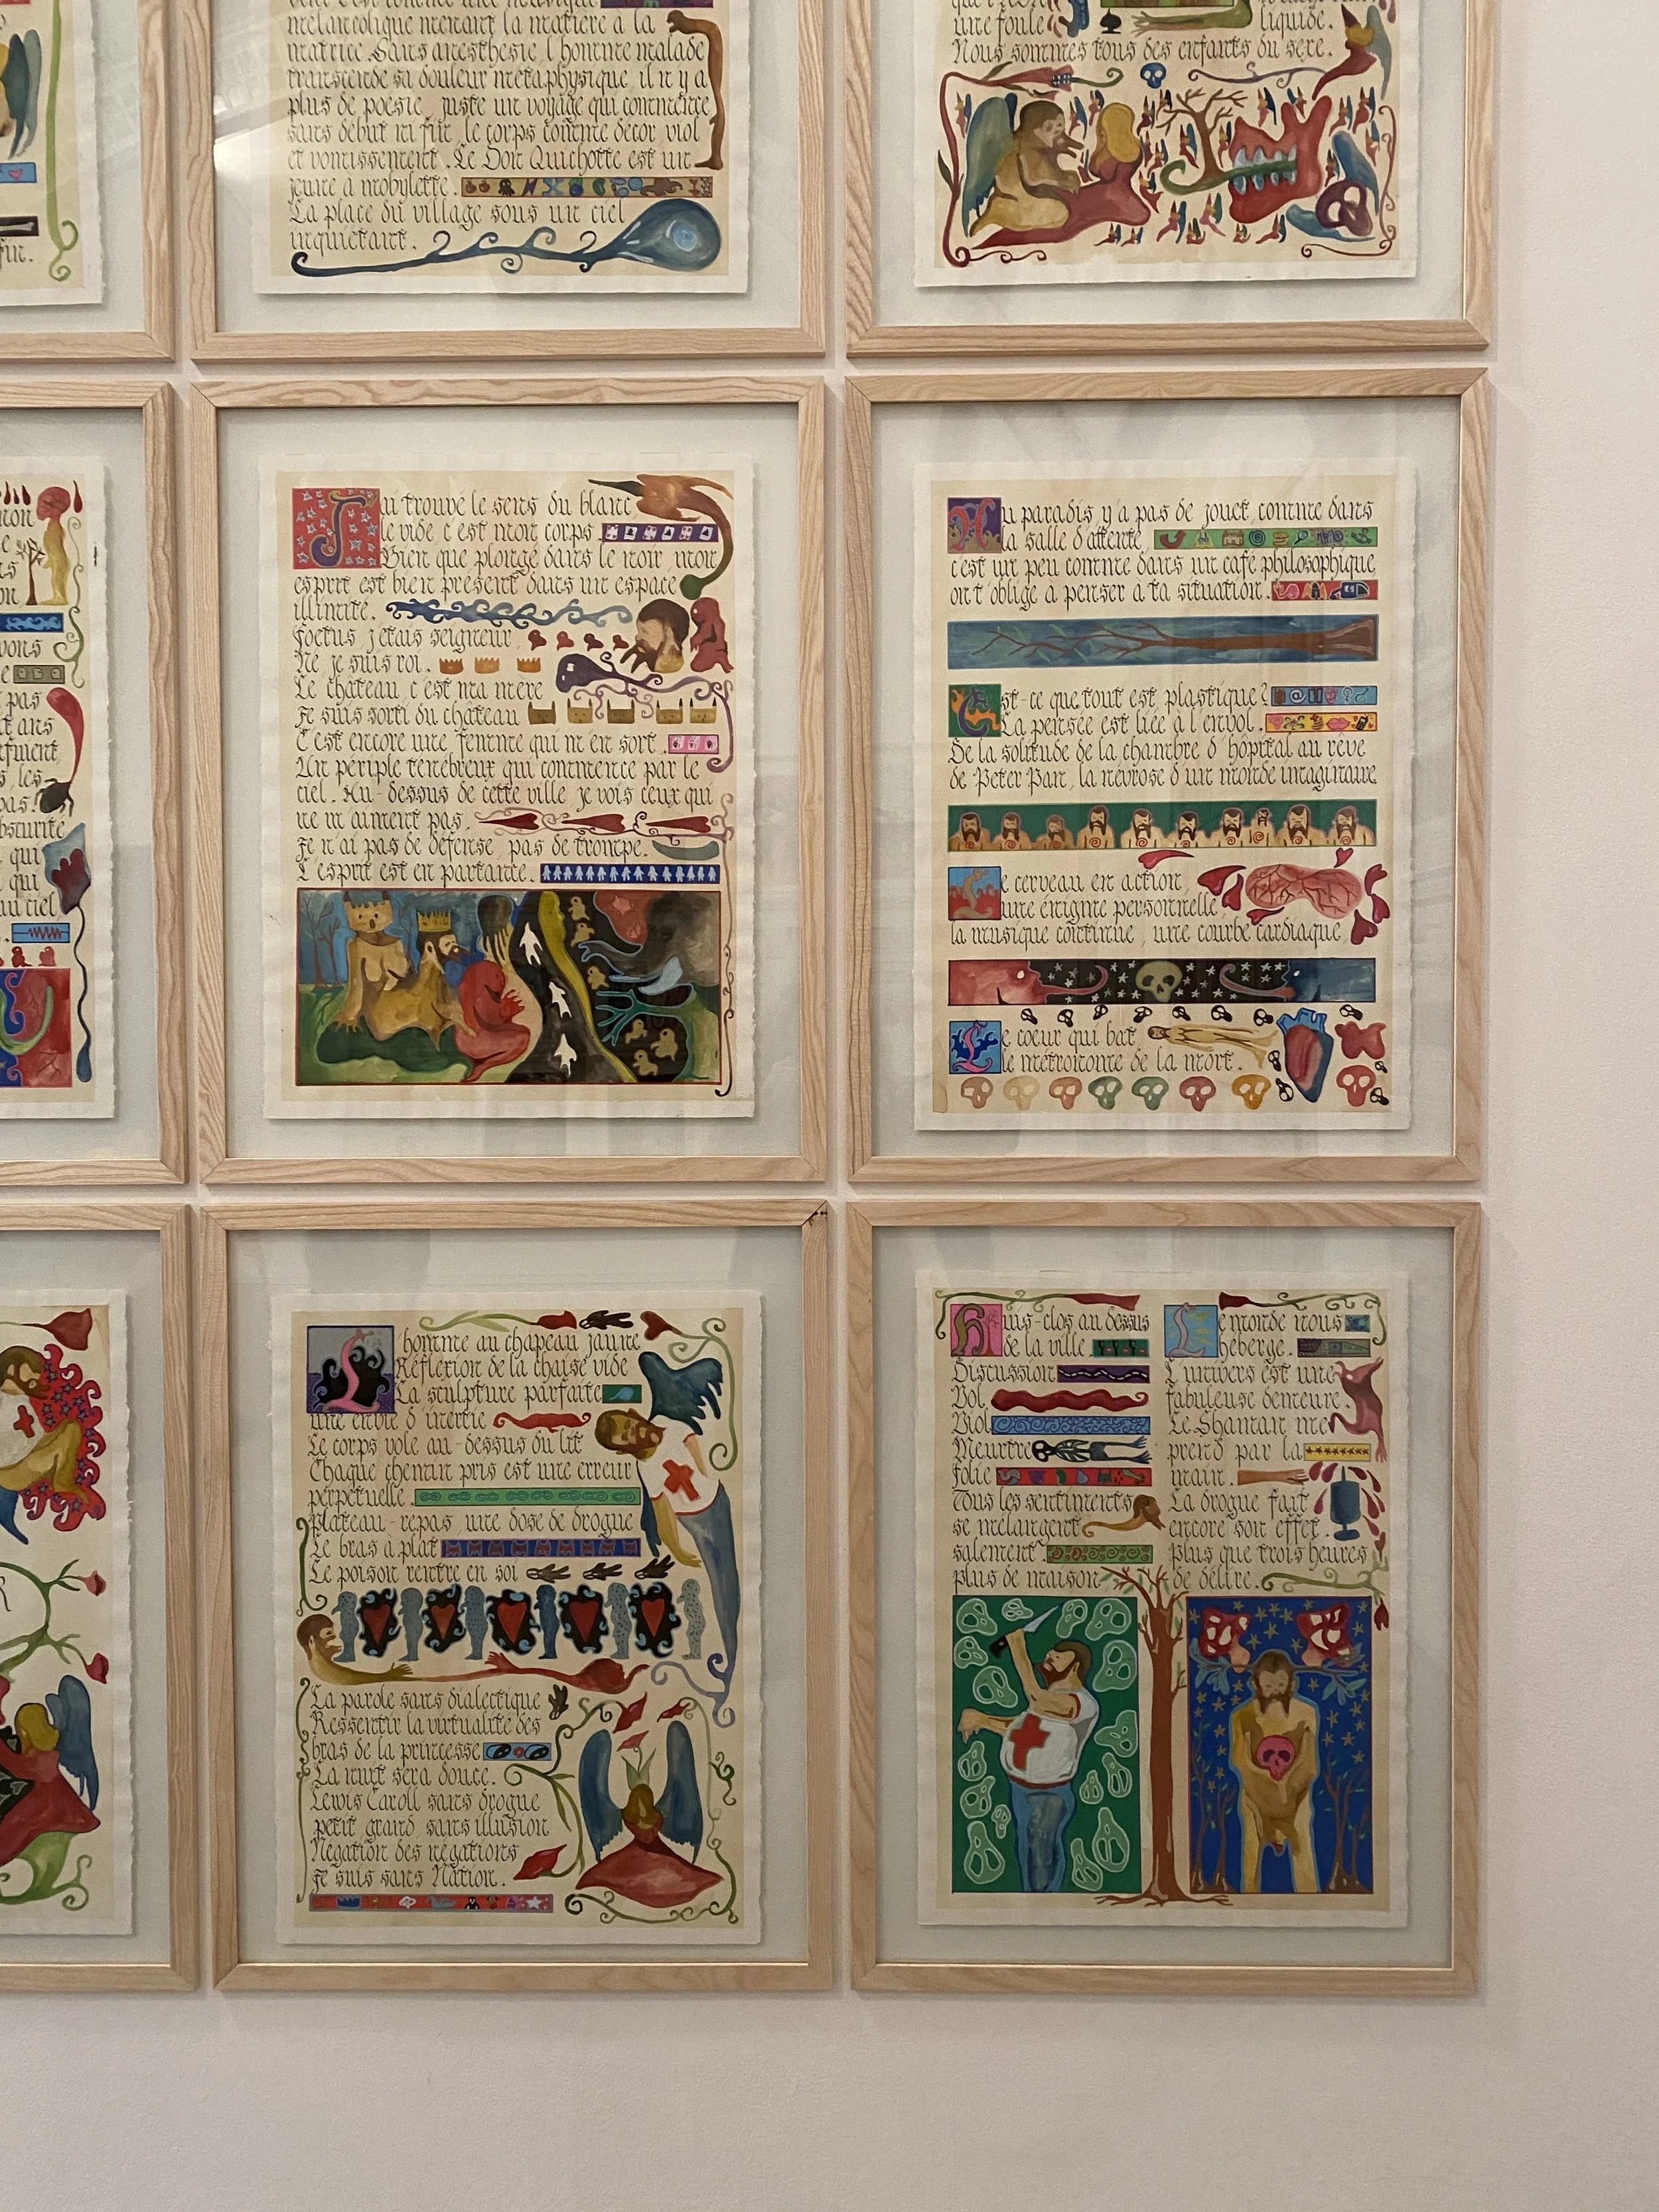 mélancolique menant la matière à la
matrice. Sans anesthésie, l'homme malade
transcende sa douleur métaphysique, il n'y a
plus de poésie, juste un voyage qui commence
sans début ni fin, le corps comme décor, viol
et vomissement. Le Don Quichotte est un
jeune à mobylette.
La place du village sous un ciel
inquiétant.
une foule liquide.
Nous sommes tous des enfants du sexe.
fin.
J'ai trouvé le sens du blanc,
le vide, c'est mon corps.
Bien que plongé dans le noir, mon
esprit est bien présent dans un espace
illimité.
Foetus, j'étais seigneur,
Né, je suis roi.
Le château, c'est ma mère
Je suis sorti du château
C'est encore une femme qui m'en sort.
Un périple ténébreux qui commence par le
ciel. Au-dessus de cette ville, je vois ceux qui
ne m'aiment pas.
Je n'ai pas de défense, pas de trompe.
L'esprit est en partance.
Au paradis y'a pas de jouet, comme dans
la salle d'attente,
c'est un peu comme dans un café philosophique,
on t'oblige à penser à ta situation.
Est-ce que tout est plastique?
La pensée est liée à l'envol.
De la solitude de la chambre d'hôpital au rêve
de Peter Pan, la névrose d'un monde imaginaire
Le cerveau en action,
une énigme personnelle,
la musique continue, une courbe cardiaque,
Le coeur qui bat
le métronome de la mort.
L'homme au chapeau jaune
Réflexion de la chaise vide
La sculpture parfaite
une envie d'inertie
Le corps vole au-dessus du lit
Chaque chemin pris est une erreur
perpétuelle.
Plateau-repas, une dose de drogue
Le bras à plat
Le poison rentre en soi
La parole sans dialectique
Ressentir la virtualité des
bras de la princesse
La nuit sera douce.
Lewis Caroll sans drogue
petit, grand, sans illusion
Négation des négations
Je suis sans Nation.
Huis-clos au dessus
de la ville.
Discussion
Vol
Viol
Meurtre
Folie
Tous les sentiments
se mélangent
salement
plus de maison
Le monde nous
héberge.
L'univers est une
fabuleuse demeure.
Le Shaman me
prend par la
main.
La drogue fait
encore son effet.
Plus que trois heures
de délire.